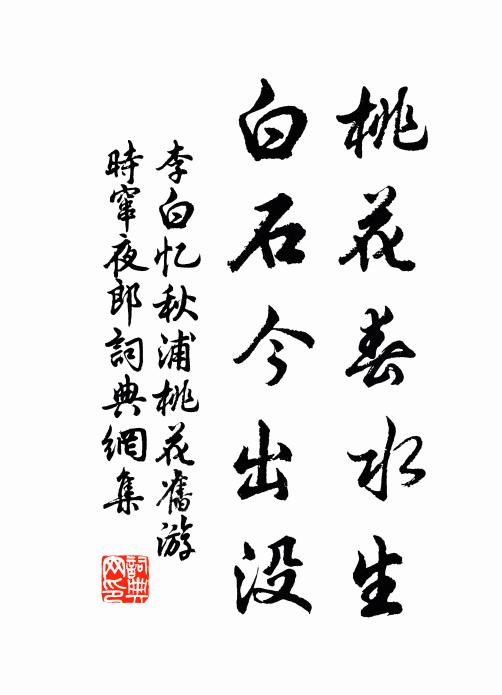 桃花春水生
白石今出没
李白忆秋浦桃花舊游
時窜夜郎詞典網集
詞典網印